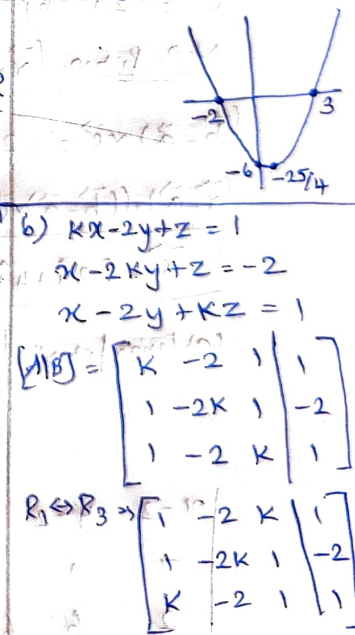 -2
3
-6
-25/4
6) kx-2y+z = 1
x-2ky+z = -2
x-2y+kz = 1
[A|B] = [ k -2 1 | 1
1 -2k 1 | -2
1 -2 k | 1 ]
R₁⇔R₃ ⇒ [ 1 -2 k | 1
1 -2k 1 | -2
k -2 1 | 1 ]